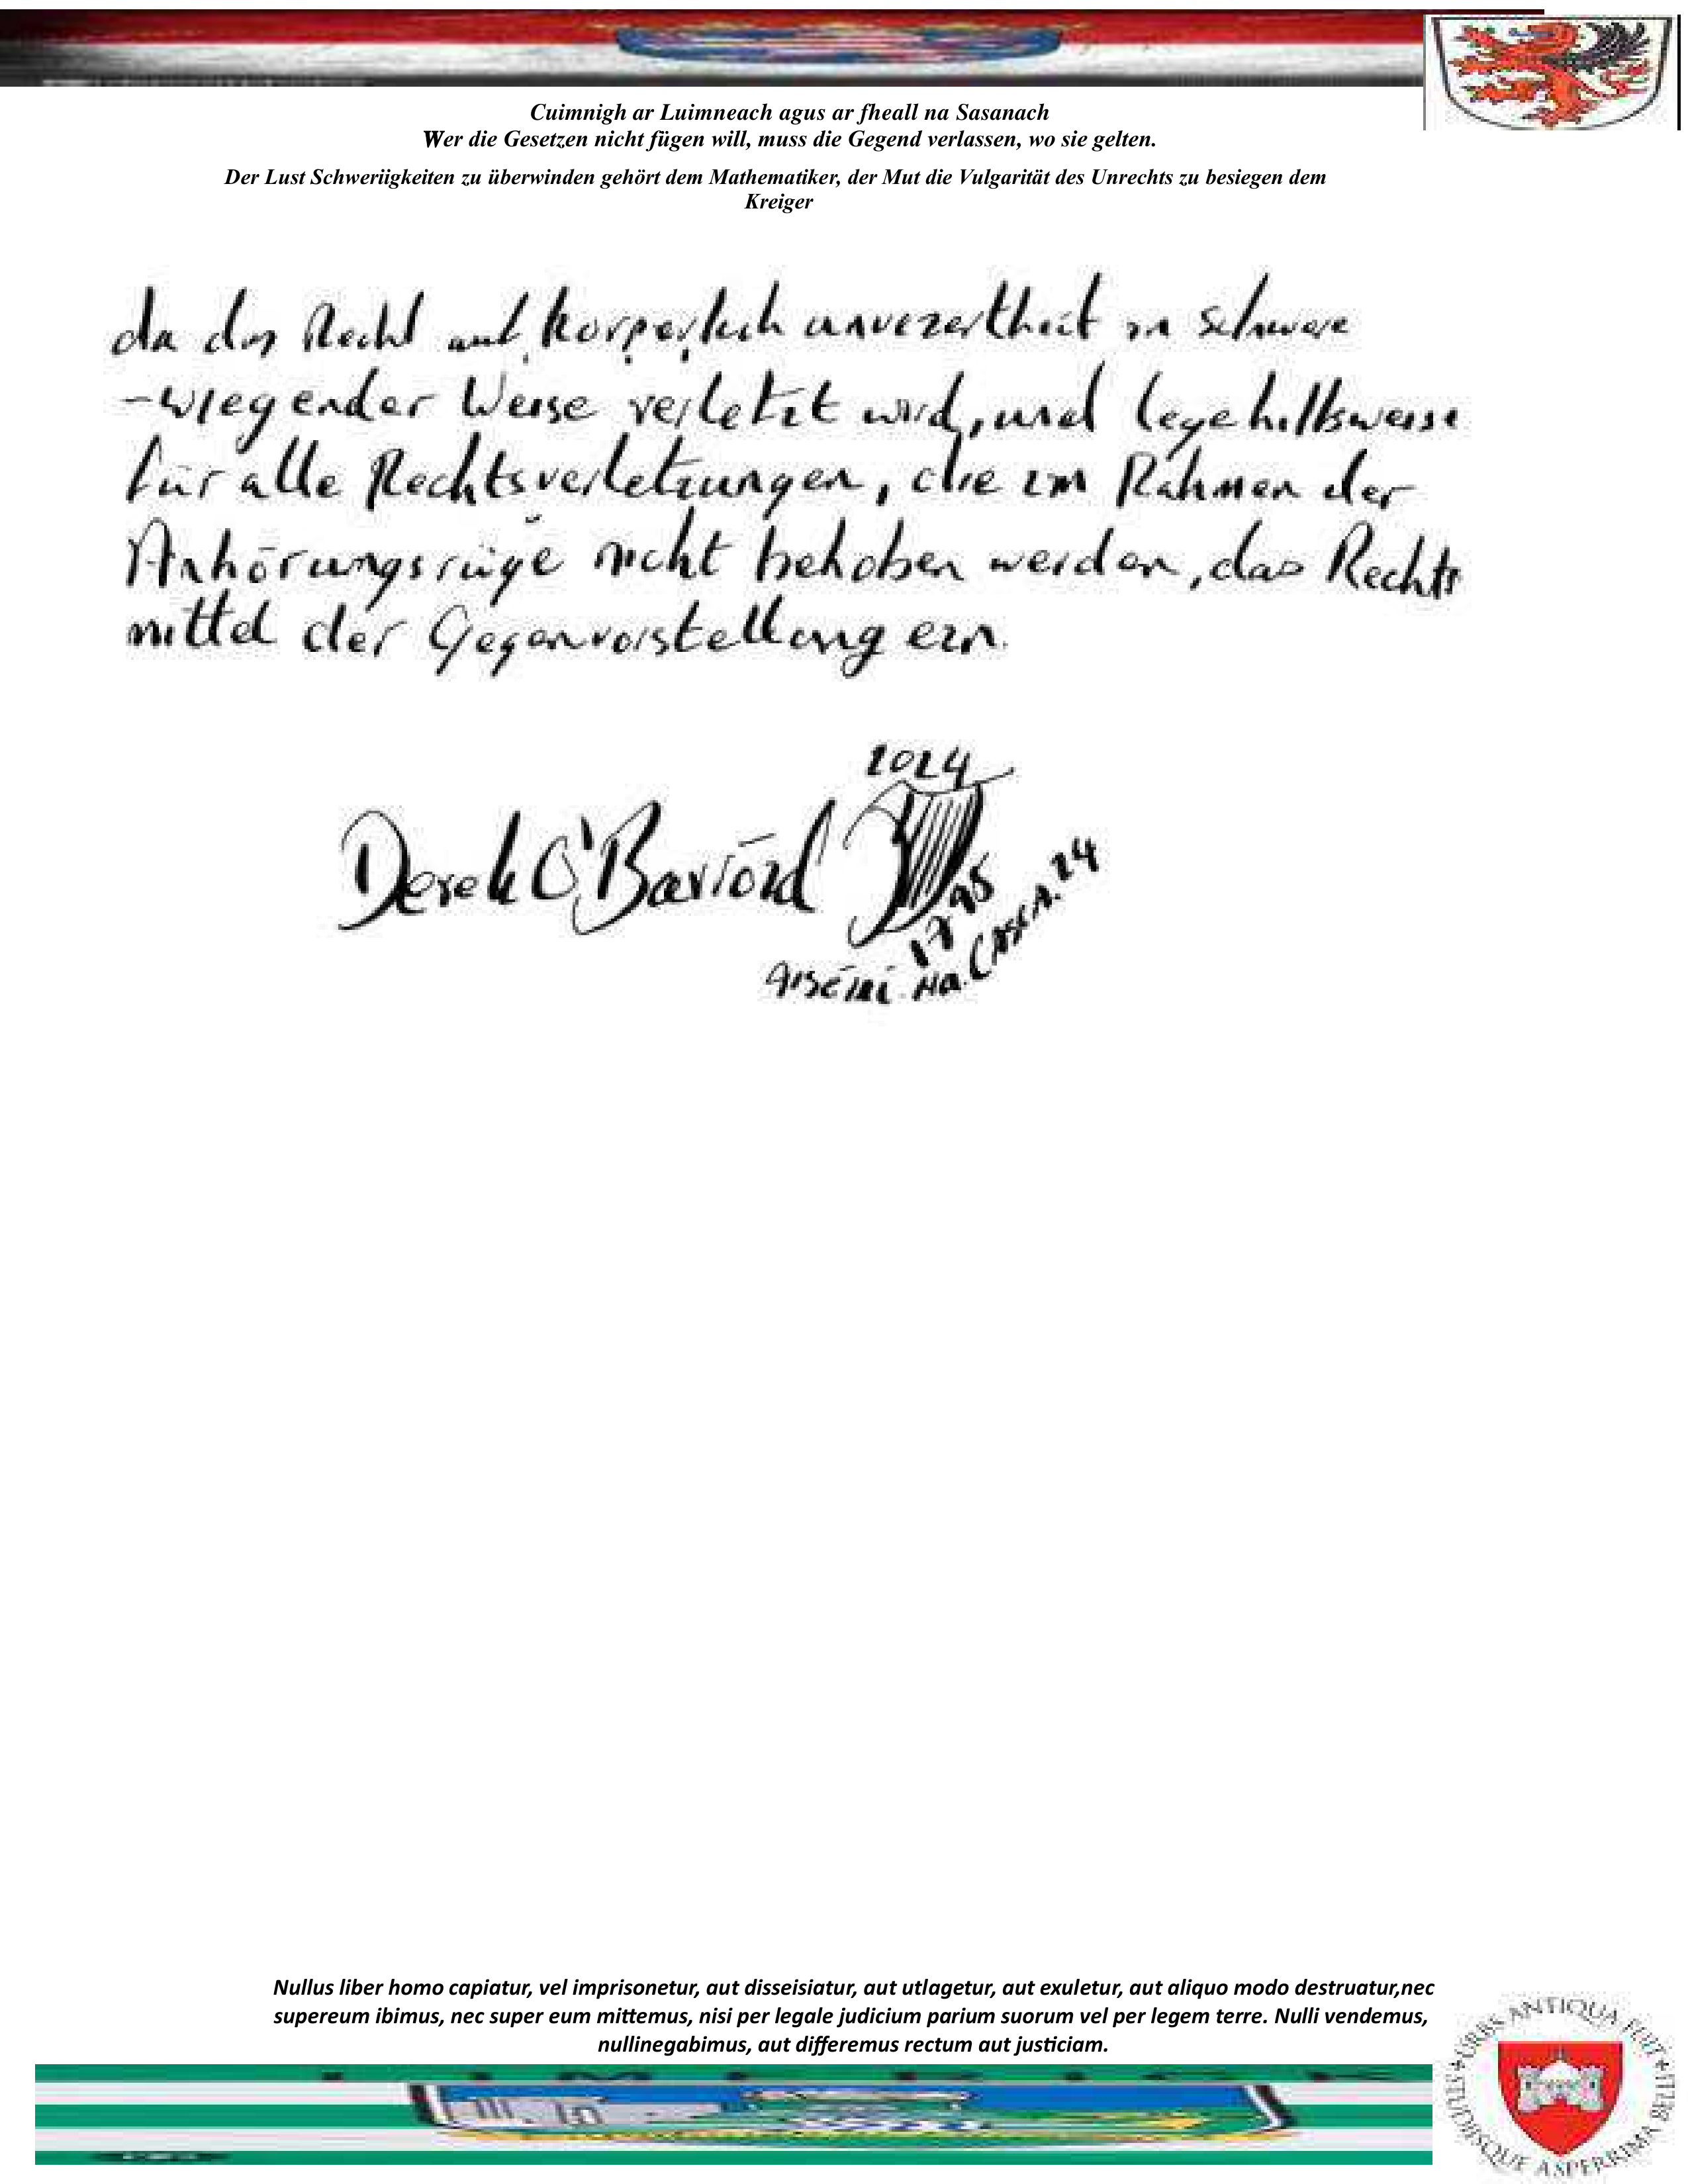 Cuimnigh ar Luimneach agus ar fheall na Sasanach
Wer die Gesetzen nicht fügen will, muss die Gegend verlassen, wo sie gelten.
Der Lust Schweriigkeiten zu überwinden gehört dem Mathematiker, der Mut die Vulgarität des Unrechts zu besiegen dem
Kreiger
da das Recht auf körperlich unvezertheit in schwere
-wiegender Weise verletzt wird, und lege hilfsweise
für alle Rechtsverletzungen, die im Rahmen der
Anhörungsrüge nicht behoben werden, das Rechts
mittel der Gegenvorstellung ein.
2024
Derek
1795
na
24
Nullus liber homo capiatur, vel imprisonetur, aut disseisiatur, aut utlagetur, aut exuletur, aut aliquo modo destruatur,nec
supereum ibimus, nec super eum mittemus, nisi per legale judicium parium suorum vel per legem terre. Nulli vendemus,
nullinegabimus, aut differemus rectum aut justiciam.
URBS ANTIQUA FUIT STUDIISQUE ASPERRIMA BELLI